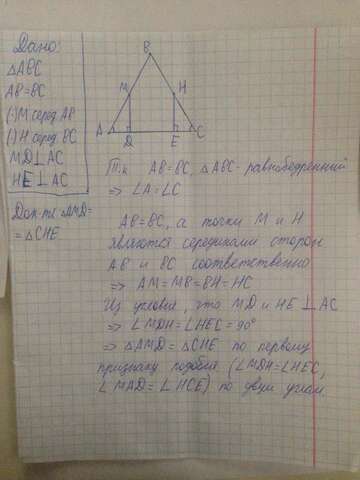 Дано:
△ABC
AB=BC
(·)M серед AB
(·)H серед BC
MD⊥AC
HE⊥AC
Док-ть △AMD=
=△CHE
B
M
H
A
D
E
C
Т.к AB=BC, △ABC-равнобедренный
⇒ ∠A=∠C
AB=BC, а точки M и H
являются серединами сторон
AB и BC соответственно
⇒ AM=MB=BH=HC
Из условия, что MD и HE⊥AC
⇒ ∠MDH=∠HEC=90°
⇒ △AMD=△CHE по первому
признаку подобия (∠MDH=∠HEC,
∠MAD=∠HCE) по двум углам.